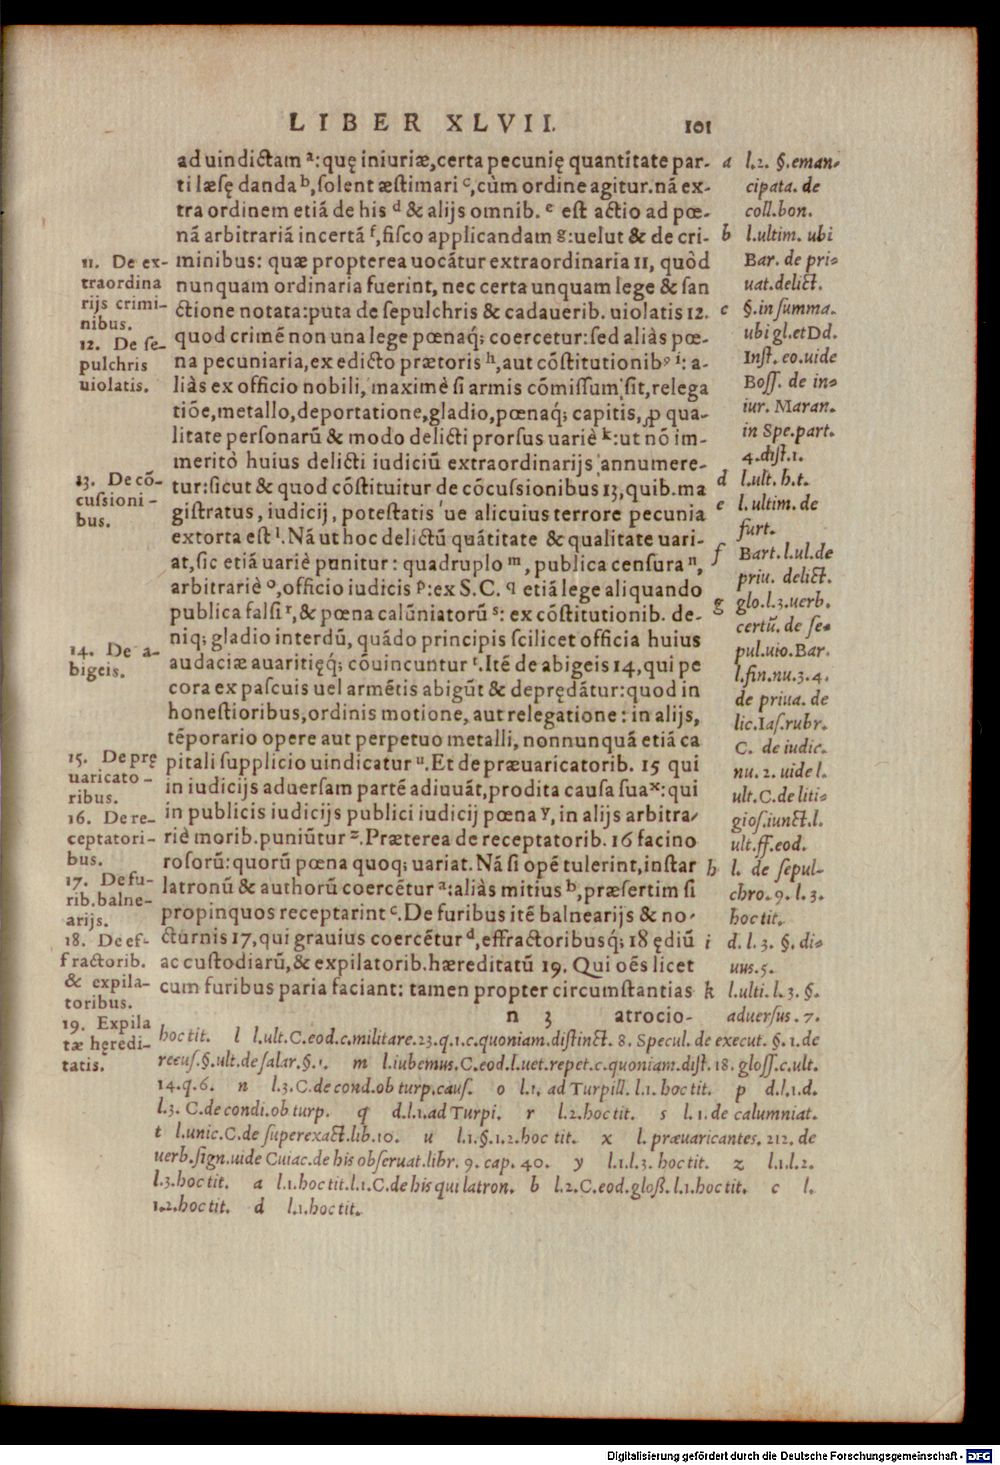 LIBER XLVII. 101
ad uindictam ᵃ: quę iniuriæ, certa pecunię quantitate par-
ti læsę danda ᵇ, solent æstimari ᶜ, cùm ordine agitur. nã ex-
tra ordinem etiã de his ᵈ & alijs omnib. ᵉ est actio ad pœ-
nã arbitrariã incertã ᶠ, fisco applicandam ᵍ: uelut & de cri-
minibus: quæ propterea uocãtur extraordinaria 11, quòd
nunquam ordinaria fuerint, nec certa unquam lege & san
ctione notata: puta de sepulchris & cadauerib. uiolatis 12.
quod crimẽ non una lege pœnaq́; coercetur: sed aliàs pœ-
na pecuniaria, ex edicto prætoris ʰ, aut cõstitutionibꝰ ⁱ: a-
liàs ex officio nobili, maximè si armis cõmissum sit, relega
tiõe, metallo, deportatione, gladio, pœnaq́; capitis, ꝓ qua-
litate personarũ & modo delicti prorsus uariè ᵏ: ut nõ im-
meritò huius delicti iudiciũ extraordinarijs annumere-
tur: sicut & quod cõstituitur de cõcussionibus 13, quib. ma
gistratus, iudicij, potestatis ue alicuius terrore pecunia
extorta est ˡ. Nã ut hoc delictũ quãtitate & qualitate uari-
at, sic etiã uariè punitur: quadruplo ᵐ, publica censura ⁿ,
arbitrariè ᵒ, officio iudicis ᵖ: ex S. C. q etiã lege aliquando
publica falsi ʳ, & pœna calũniatorũ ˢ: ex cõstitutionib. de-
niq; gladio interdũ, quãdo principis scilicet officia huius
audaciæ auaritięq́; cõuincuntur ᵗ. Itẽ de abigeis 14, qui pe
cora ex pascuis uel armẽtis abigũt & depręდãtur: quod in
honestioribus, ordinis motione, aut relegatione: in alijs,
tẽporario opere aut perpetuo metalli, nonnunquã etiã ca
pitali supplicio uindicatur ᵘ. Et de præuaricatorib. 15 qui
in iudicijs aduersam partẽ adiuuãt, prodita causa sua ˣ: qui
in publicis iudicijs publici iudicij pœna ʸ, in alijs arbitra-
riè morib. puniũtur ᶻ. Præterea de receptatorib. 16 facino
rosorũ: quorũ pœna quoq; uariat. Nã si opẽ tulerint, instar
latronũ & authorũ coercẽtur ᵃ: aliàs mitius ᵇ, præsertim si
propinquos receptarint ᶜ. De furibus itẽ balnearijs & no-
cturnis 17, qui grauius coercẽtur ᵈ, effractoribusq́; 18 ędiũ
ac custodiarũ, & expilatorib. hæreditatũ 19. Qui oẽs licet
cum furibus paria faciant: tamen propter circumstantias
n 3 atrocio-
11. De ex-
traordina
rijs crimi-
nibus.
12. De se-
pulchris
uiolatis.
13. De cõ-
cussioni-
bus.
14. De a-
bigeis.
15. De prę
uaricato-
ribus.
16. De re-
ceptatori-
bus.
17. De fu-
rib. balne-
arijs.
18. De ef-
fractorib.
& expila-
toribus.
19. Expila
tæ heredi-
tatis.
a l. 2. §. eman-
cipata. de
coll. bon.
b l. ultim. ubi
Bar. de pri-
uat. delict.
c §. in summa.
ubi gl. et Dd.
Inst. eo. uide
Boss. de in-
iur. Maran.
in Spe. part.
4. dist. 1.
d l. ult. h. t.
e l. ultim. de
furt.
f Bart. l. ul. de
priu. delict.
g glo. l. 3. uerb.
certũ. de se-
pul. uio. Bar.
l. fin. nu. 3. 4.
de priua. de
lic. Ias. rubr.
C. de iudic.
nu. 2. uide l.
ult. C. de liti-
gios. iunct. l.
ult. ff. eod.
h l. de sepul-
chro. 9. l. 3.
hoc tit.
i d. l. 3. §. di-
uus. 5.
k l. ulti. l. 3. §.
aduersus. 7.
hoc tit. l l. ult. C. eod. c. militare. 23. q. 1. c. quoniam. distinct. 8. Specul. de execut. §. 1. de
receus. §. ult. de salar. §. 1. m l. iubemus. C. eod. l. uet. repet. c. quoniam. dist. 18. gloss. c. ult.
14. q. 6. n l. 3. C. de cond. ob turp. caus. o l. 1. ad Turpill. l. 1. hoc tit. p d. l. 1. d.
l. 3. C. de condi. ob turp. q d. l. 1. ad Turpi. r l. 2. hoc tit. s l. 1. de calumniat.
t l. unic. C. de superexact. lib. 10. u l. 1. §. 1. 2. hoc tit. x l. præuaricantes. 212. de
uerb. sign. uide Cuiac. de his obseruat. libr. 9. cap. 40. y l. 1. l. 3. hoc tit. z l. 1. l. 2.
l. 3. hoc tit. a l. 1. hoc tit. l. 1. C. de his qui latron. b l. 2. C. eod. gloß. l. 1. hoc tit. c l.
1. 2. hoc tit. d l. 1. hoc tit.
Digitalisierung gefördert durch die Deutsche Forschungsgemeinschaft - DFG